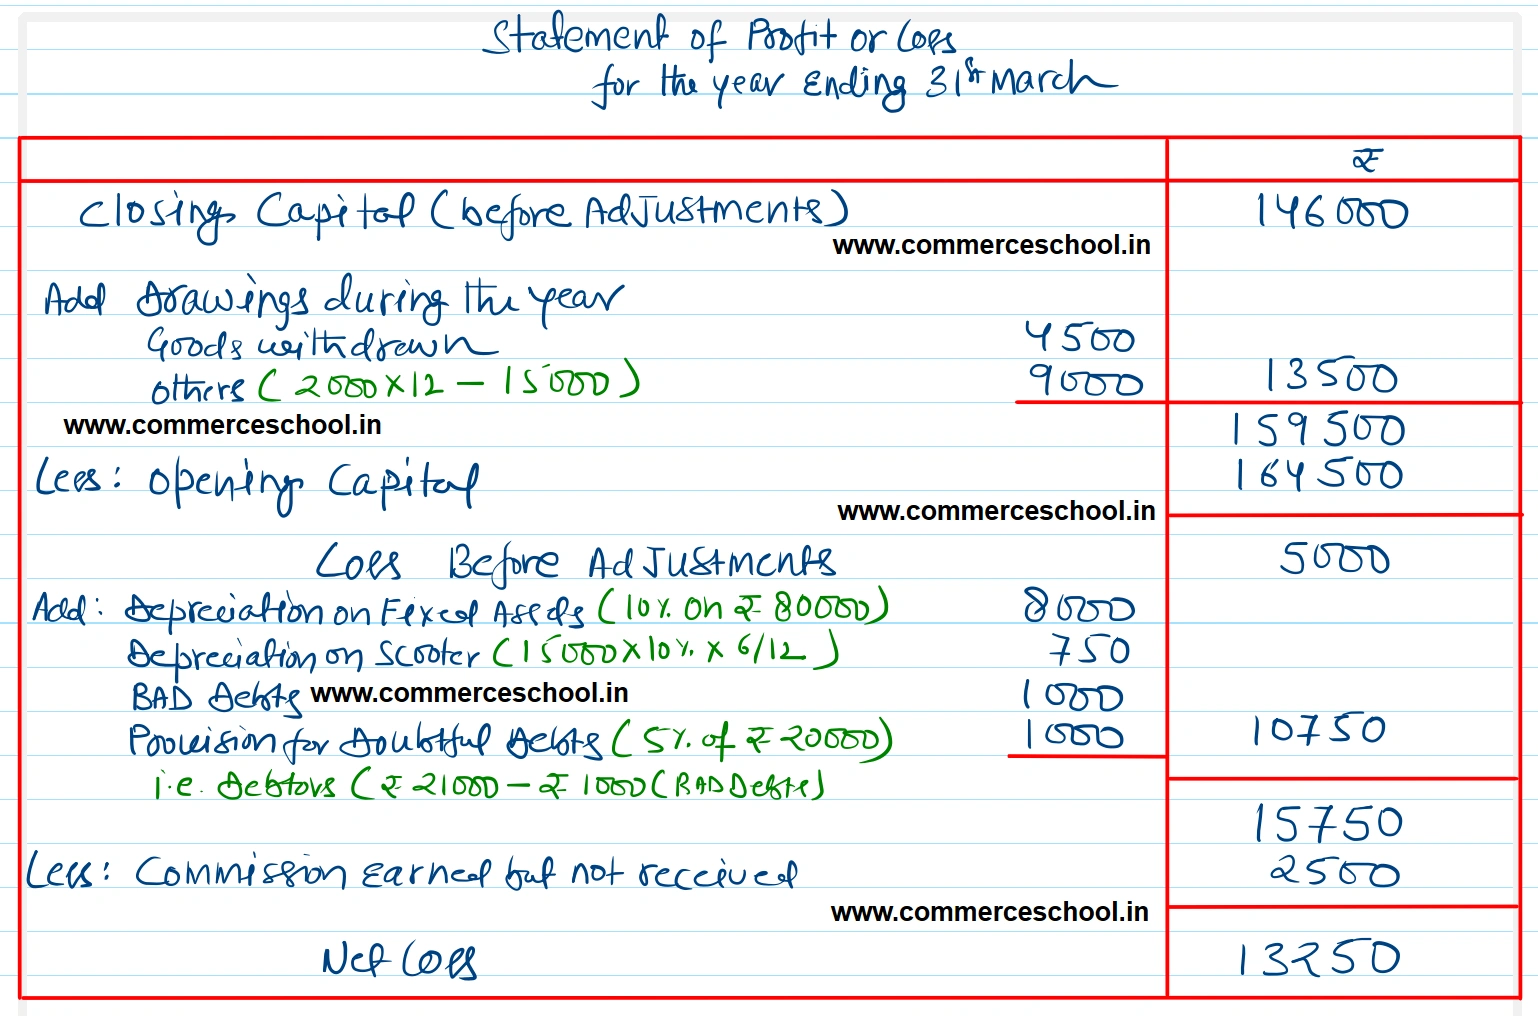 Statement of Profit or Loss
for the year Ending 31st March
₹
Closing Capital (before Adjustments) 146000
www.commerceschool.in
Add Drawings during the year
Goods withdrawn 4500
others (2000×12 – 15000) 9000 13500
www.commerceschool.in
159500
Less: Opening Capital 164500
www.commerceschool.in
Loss Before Adjustments 5000
Add: Depreciation on Fixed Assets (10% on ₹ 80000) 8000
Depreciation on Scooter (15000×10% × 6/12) 750
BAD Debts www.commerceschool.in 1000
Provision for Doubtful Debts (5% of ₹ 20000) 1000 10750
i.e. Debtors (₹ 21000 – ₹ 1000 (BAD Debts)
15750
Less: Commission Earned but not received 2500
www.commerceschool.in
Net Loss 13250